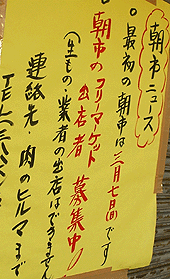 朝市ニュース
。最初の朝市は三月七日(日)です
。朝市のフリーマーケット
出店者 募集中!
(生もの・業者の出店はできません)
連絡先・内のヒルマまで
TEL